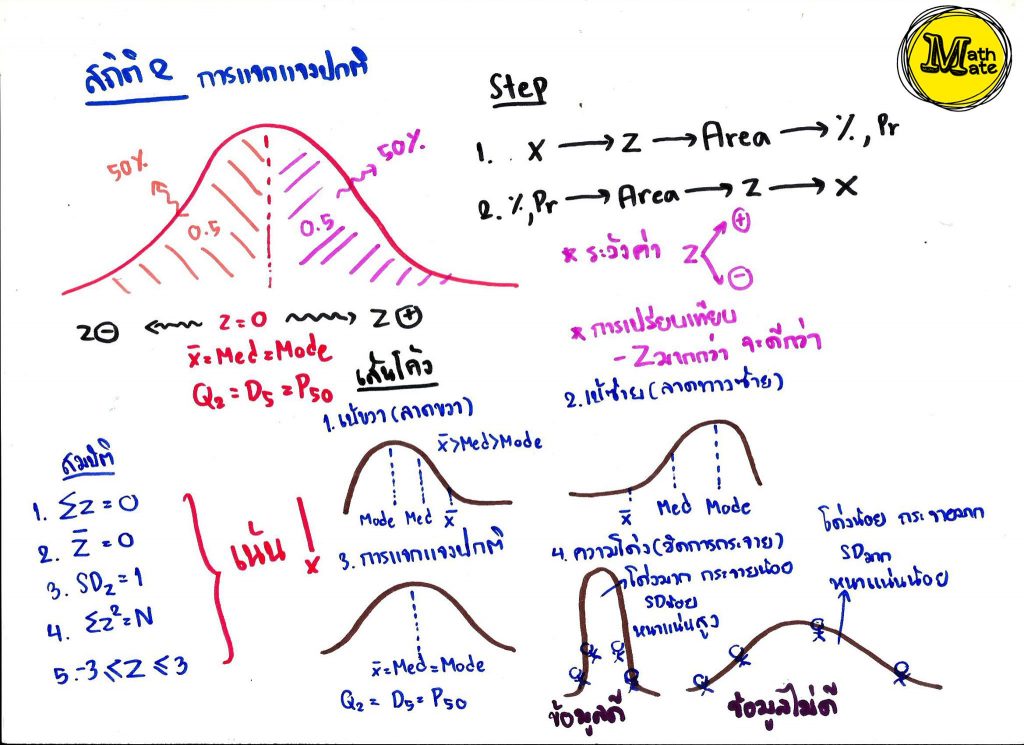 สถิติ 2 การแจกแจงปกติ
Math
Mate
50%
50%
0.5
0.5
Z⊖ Z=0 Z⊕
x̄=Med=Mode
Q₂=D₅=P₅₀
Step
1. X → Z → Area → %, Pr
2. %, Pr → Area → Z → X
* ระวังค่า Z ⊕
⊖
* การเปรียบเทียบ
- Zมากกว่า จะดีกว่า
สมบัติ
1. ΣZ=0
2. Z̄=0
3. SDz=1
4. Σz²=N
5. -3≤Z≤3
เน้น !
x
เส้นโค้ง
1. เบ้ขวา (ลาดขวา)
x̄>Med>Mode
Mode Med x̄
2. เบ้ซ้าย (ลาดทางซ้าย)
x̄ Med Mode
3. การแจกแจงปกติ
x̄=Med=Mode
Q₂=D₅=P₅₀
4. ความโด่ง (ชิดการกระจาย)
โด่งมาก กระจายน้อย
SDน้อย
หนาแน่นสูง
ข้อมูลดี
โด่งน้อย กระจายมาก
SDมาก
หนาแน่นน้อย
ข้อมูลไม่ดี